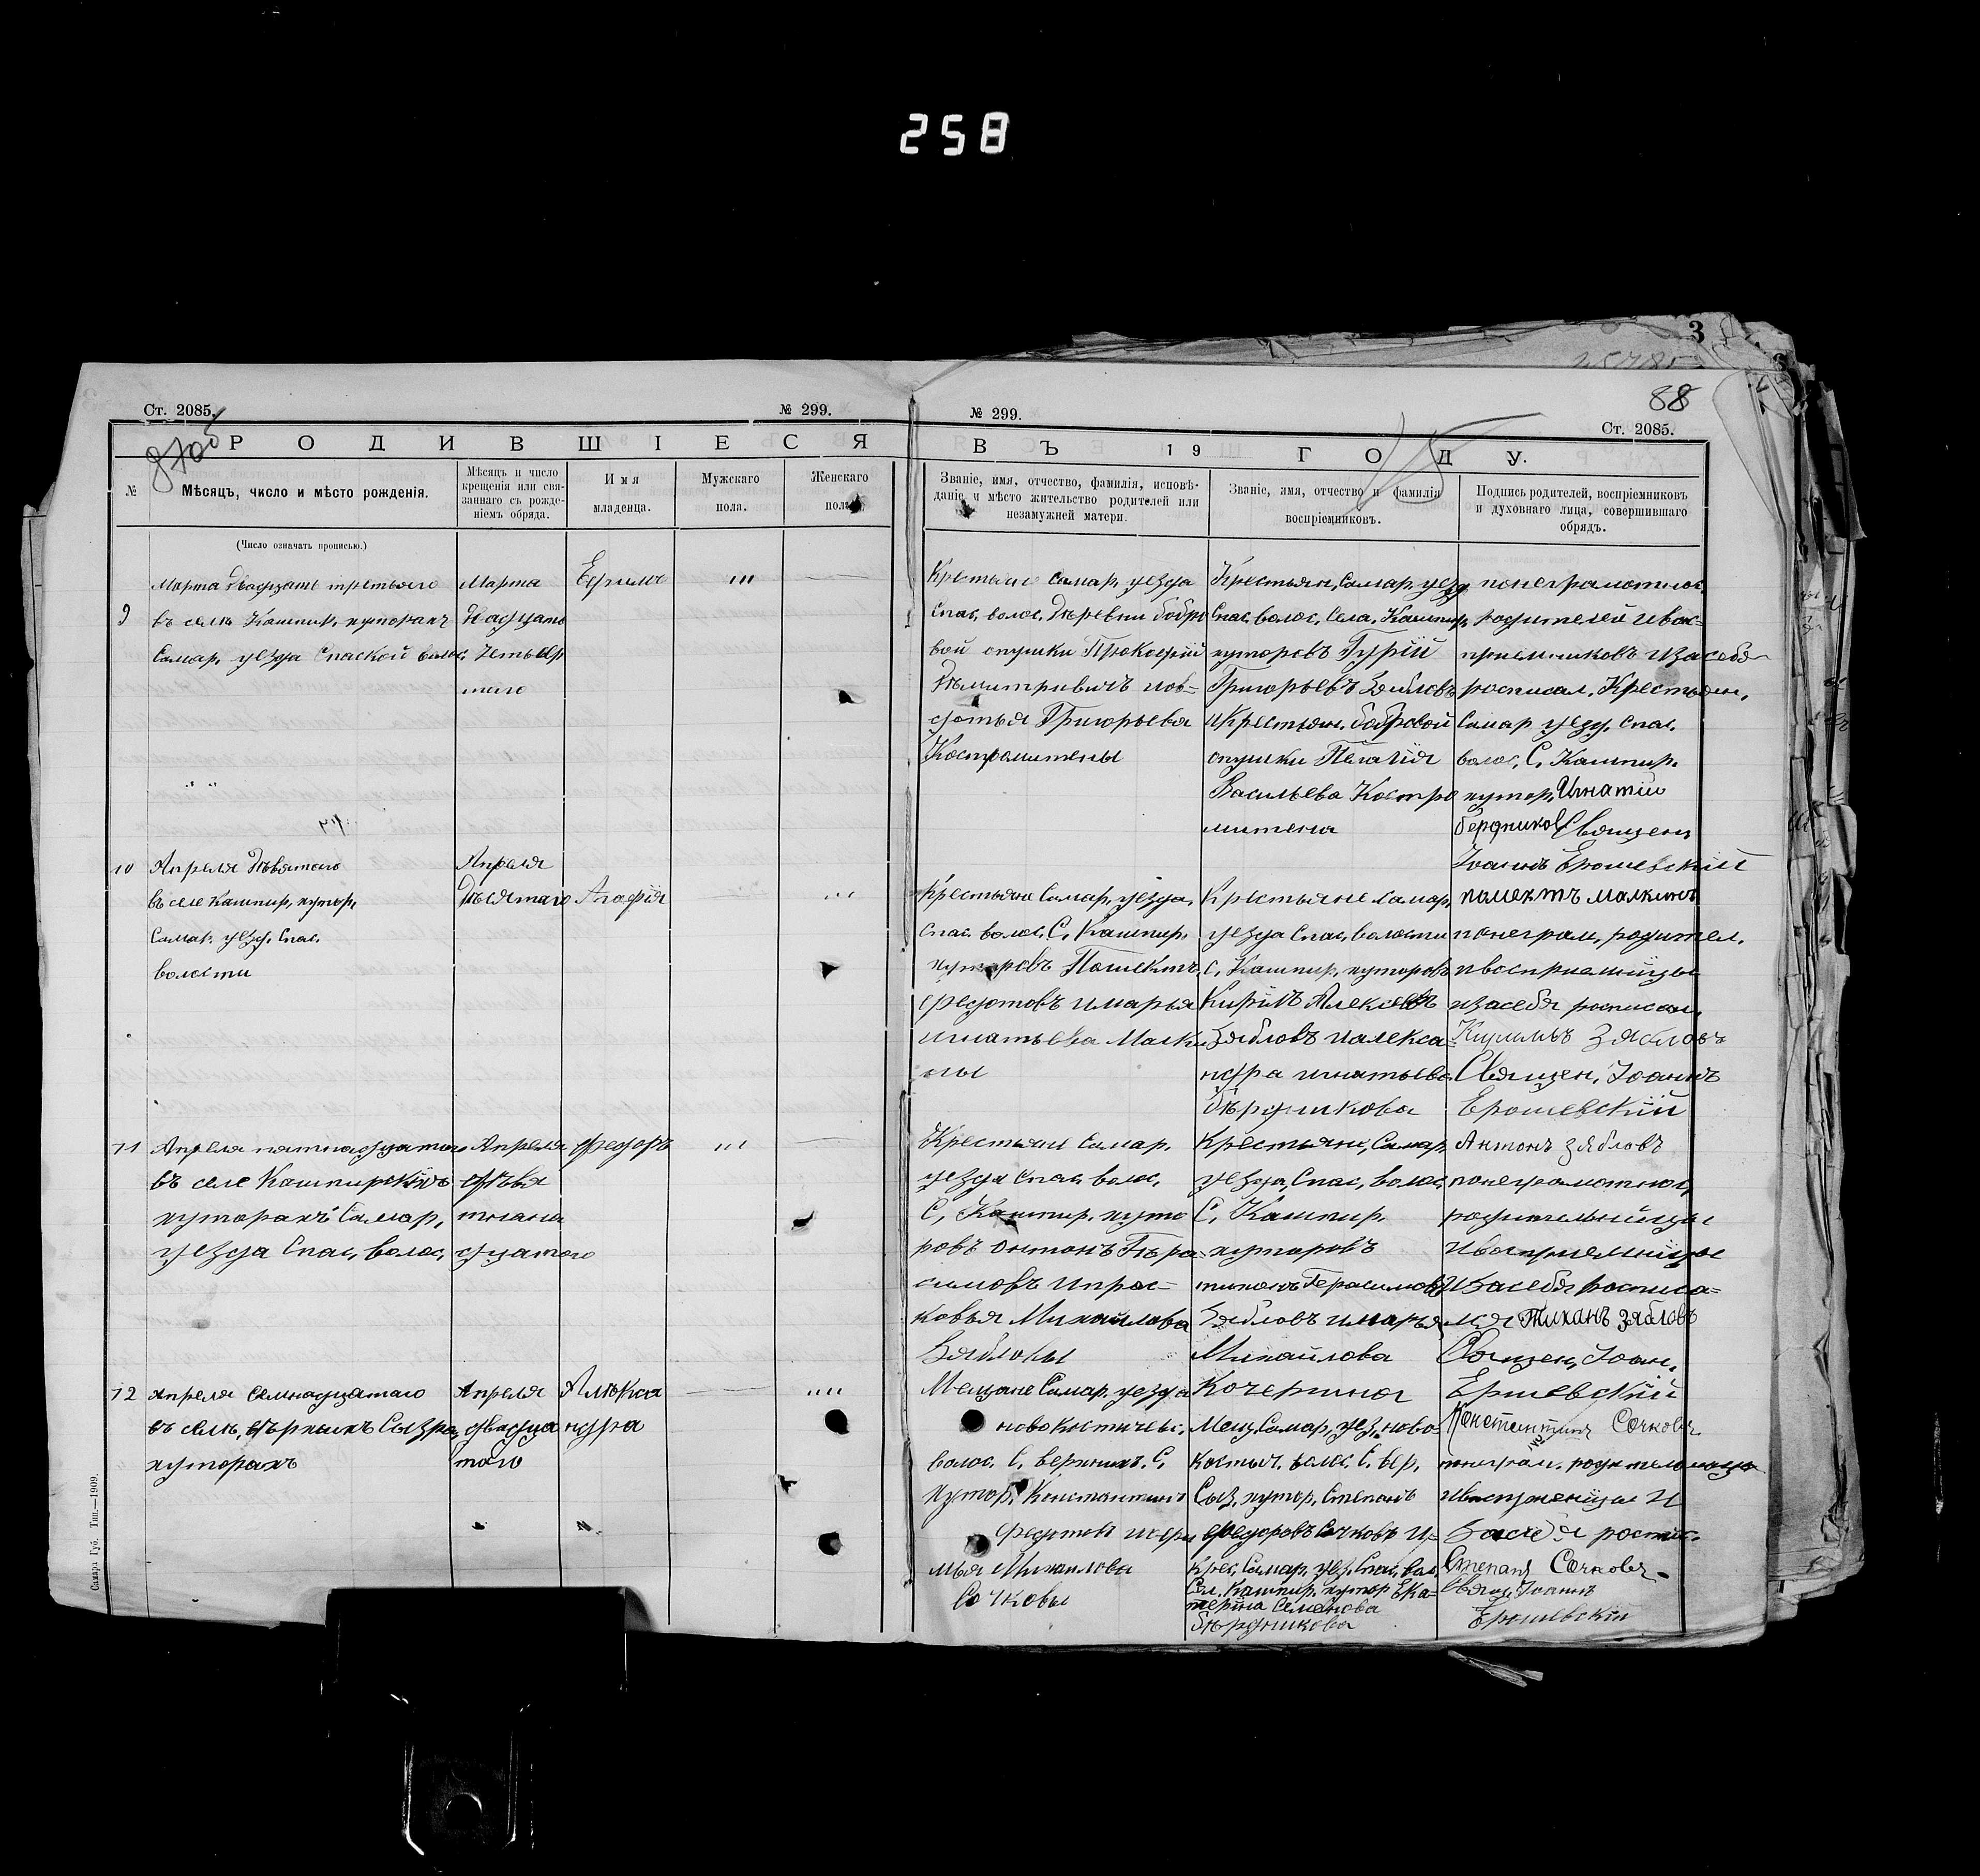 258
3
88
Ст. 2085.
№ 299.
№ 299.
Ст. 2085.
РОДИВШІЕСЯ
ВЪ 19 ГОДУ.
№
Мѣсяцъ, число и мѣсто рожденія.
Мѣсяцъ и число
крещенія или свя-
заннаго съ рожде-
ніемъ обряда.
Имя
младенца.
Мужскаго
пола.
Женскаго
пола.
Званіе, имя, отчество, фамилія, исповѣ-
даніе и мѣсто жительство родителей или
незамужней матери.
Званіе, имя, отчество и фамилія
воспріемниковъ.
Подпись родителей, воспріемниковъ
и духовнаго лица, совершившаго
обрядъ.
(Число означать прописью.)
9
Марта Двадцать третьяго
въ селѣ Кашпир. хуторахъ
Самар. уезда Спаской волос.
Марта
Двадцать
Четвер
таго
Ефимъ
Крестьяне Самар. уезда
Спас. волос. Деревни Бобро
вой опушки Прокофій
Дѣмитриевичъ
Григорьева
Костромитены
Крестьян. Самар. уезд
Спас. волос. Села. Кашпир.
хуторовъ Гурій
Григорьевъ Зябловъ
и Крестьян. Бобровой
опушки Пелагия
Васильева Костро
митена
понеграмотнос
родителей и вос-
приемниковъ и за себя
росписал. Крестьян.
Самар уезд. Спас.
волос. С. Кашпир.
хутор. Игнатій
Бердников Священ
Іоаннъ Ерошевский
10
Апреля Дѣвятого
въ селе Кашпир. хутор.
Самар. уезд. Спас.
волости
Апреля
Дѣсятаго
Агафія
Крестьяне Самар. уезда.
Спас. волос. С. Кашпир.
хуторовъ
Федотовъ и марья
игнатьева Малки
ны
Крестьяне Самар.
уезда Спас. волости
С. Кашпир. хуторовъ
Кирилъ Алексеевъ
Зябловъ и алекса-
ндра игнатьева
Бѣрдникова
малкинъ
понеграм. родител.
и восприемницы
и за себя росписал.
Зябловъ
Священ. Іоаннъ
Ерошевский
11
Апреля пятнадцатаго
въ селе Кашпирскихъ
хуторахъ Самар.
уезда Спас. волос.
Апреля
дѣвя
тнана
дцатого
Федоръ
Крестьяни Самар.
уезда Спас. волос.
С. Кашпир. хуто
ровъ антонъ Гѣра-
симовъ и прас-
ковья Михайлова
Зябловы
Крестьяни, Самар.
уезда, Спас. волос.
С. Кашпир.
хуторовъ
тиханъ Герасимовъ
Зябловъ и марья
Михайлова
Кочергина
Антонъ Зябловъ
понеграмотнос
родительницы
и восприемницы
и за себя росписа-
лся Тиханъ Зябловъ
Священ. Іоан.
Ершевский
12
апреля Семнадцатаго
въ селѣ, вѣрхнихъ Сызра.
хуторахъ
Апреля
двадца
таго
Алѣкса
ндра
Мещане Самар. уезда
новокостычевс.
волос. С. верхнихъ. С.
хутор. Константинъ
Федотовъ
Михаилова
Сочковы
Мещ. Самар. уез. ново-
костыч. волос. С. вер.
Сыз. хутор. Степанъ
Федоровъ Сочковъ и-
Крес. Самар. уез. Спас. вол.
Сел. Кашпир. хутор Ека-
терина Семенова
Бѣрдникова
Константинъ Сочковъ
за себя роспис.
Степанъ Сочковъ
Свящ. Іоаннъ
Ерошевский
Самара Губ. Тип.—1909.